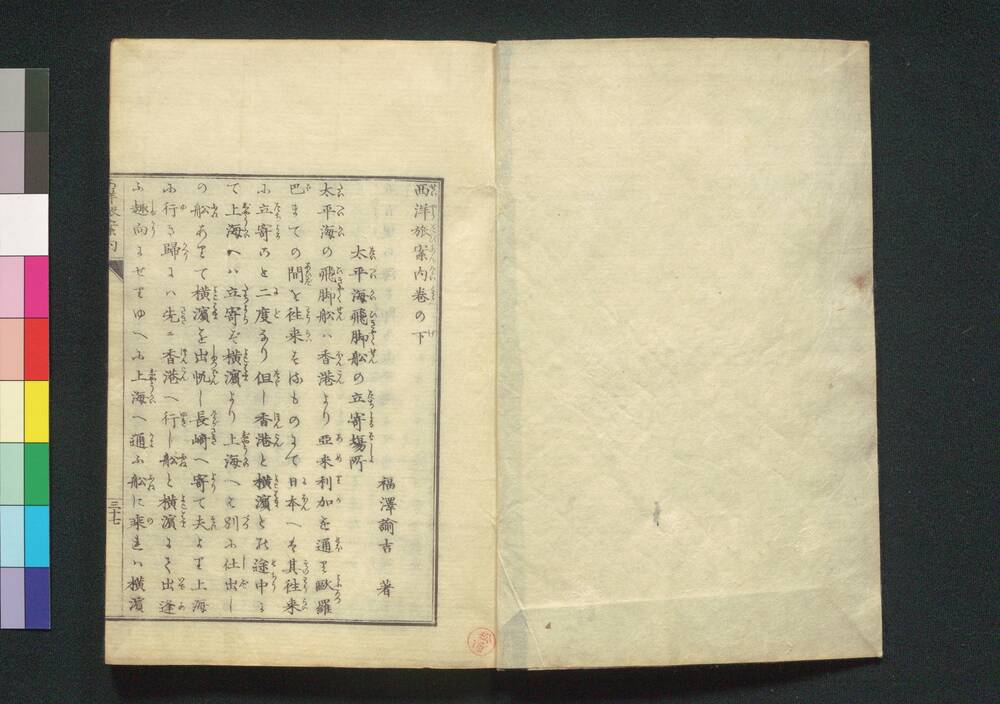 西洋旅案内巻の下
福澤諭吉 著
太平海飛脚舩の立寄塲所
太平海の飛脚舩ハ香港より亞米利加を通り歐羅
巴までの間を往来するものにて日本へも其往来
に立寄ること二度なり但し香港と横濵との途中に
て上海へハ立寄らず横濵より上海へは別に仕出し
の舩ありて横濵を出帆し長崎へ寄て夫より上海
に行き歸りにハ先に香港へ行し舩と横濵にて出逢
ふ趣向にせりゆへに上海へ通ふ舩に乗れハ横濵
三十七